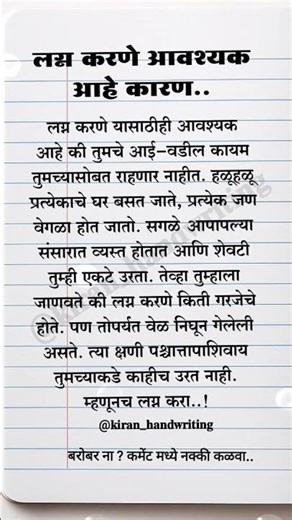 लग्न करणे आवश्यक
आहे कारण..
लग्न करणे यासाठीही आवश्यक
आहे की तुमचे आई-वडील कायम
तुमच्यासोबत राहणार नाहीत. हळूहळू
प्रत्येकाचे घर बसत जाते, प्रत्येक जण
वेगळा होत जातो. सगळे आपापल्या
संसारात व्यस्त होतात आणि शेवटी
तुम्ही एकटे उरता. तेव्हा तुम्हाला
जाणवते की लग्न करणे किती गरजेचे
होते. पण तोपर्यंत वेळ निघून गेलेली
असते. त्या क्षणी पश्चात्तापाशिवाय
तुमच्याकडे काहीच उरत नाही.
म्हणूनच लग्न करा..!
@kiran_handwriting
बरोबर ना ? कमेंट मध्ये नक्की कळवा..
@kiran_handwriting